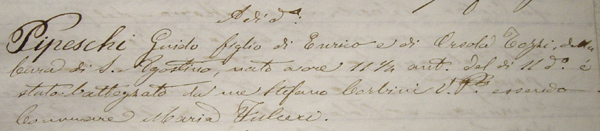 A dì d.º
Pipeschi Guido figlio di Enrico e di Orsola Tozzi, della
Cura di S. Agostino, nato a ore 11¼ ant. del dì 11 d.º è
stato battezzato da me Stefano Corbini V. P. essendo
Comare Maria